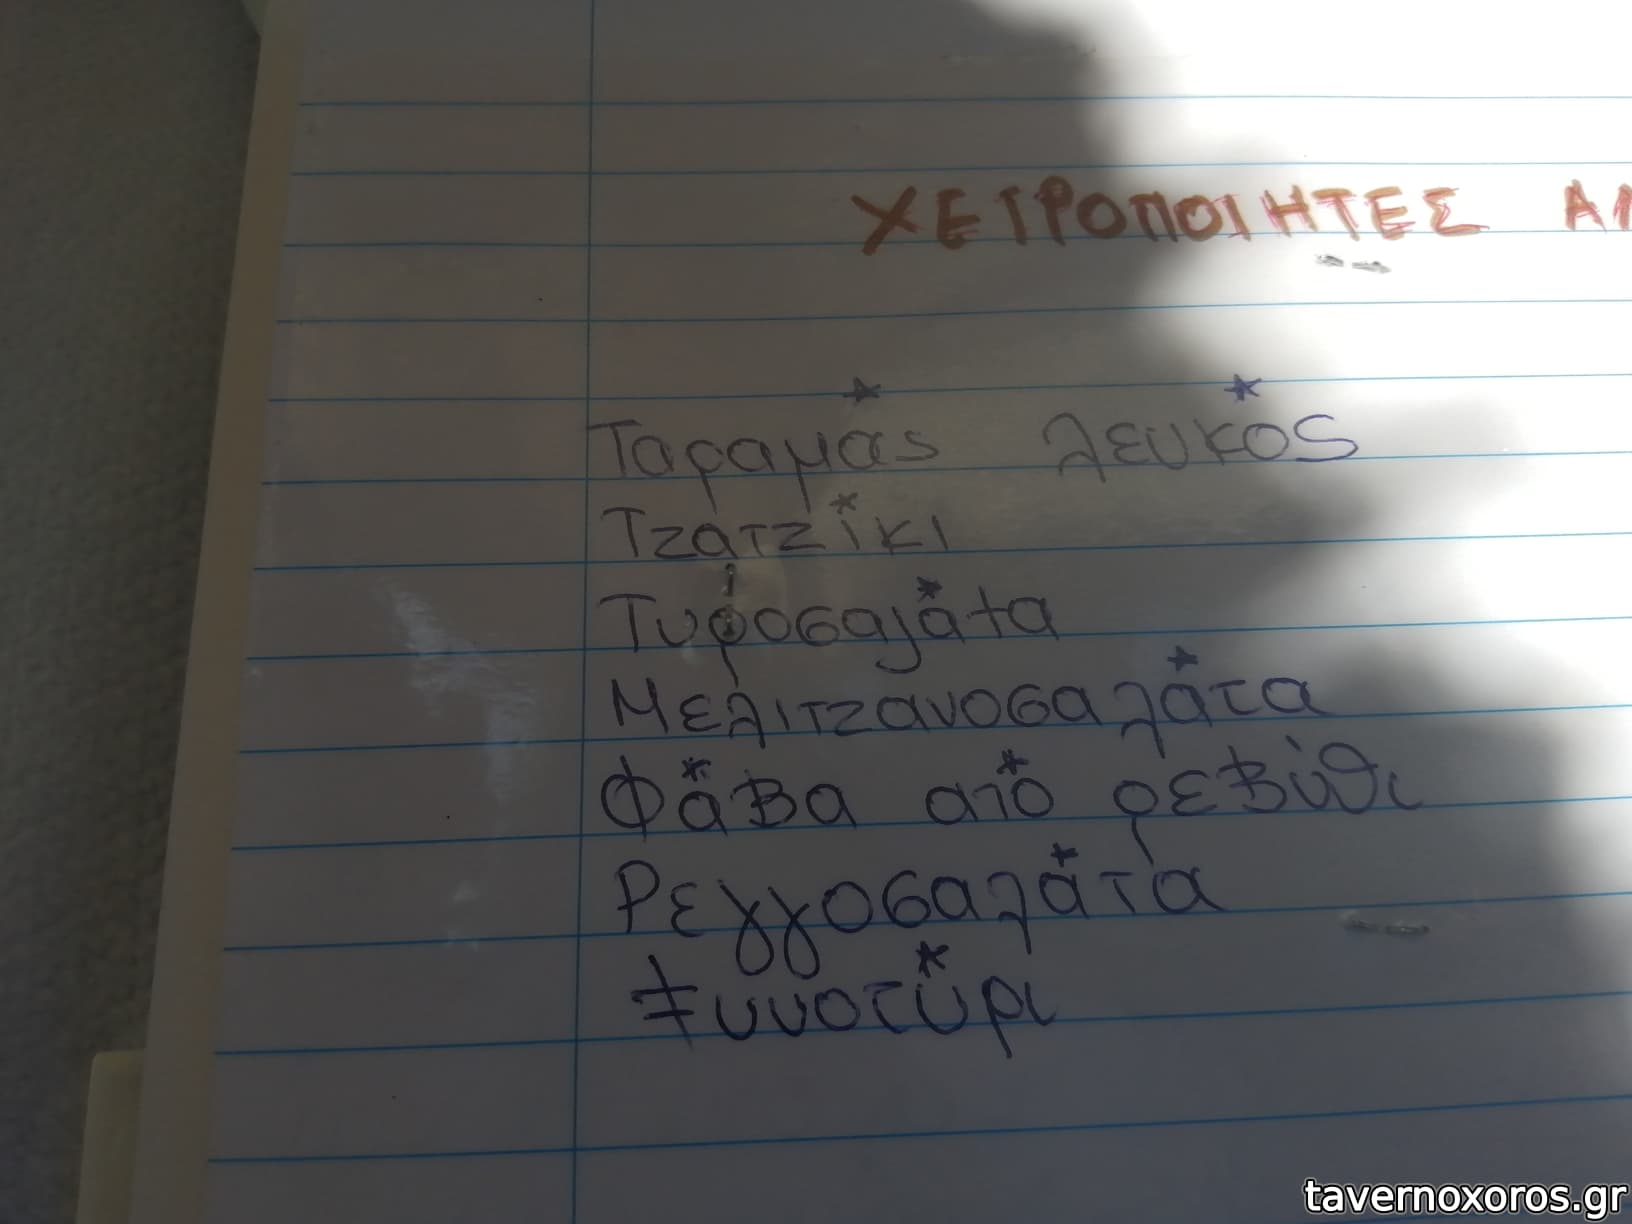 ΧΕΙΡΟΠΟΙΗΤΕΣ
Ταραμάς λευκός
Τζατζίκι
Τυροσαλάτα
Μελιτζανοσαλάτα
Φάβα από ρεβύθι
Ρεγγοσαλάτα
Ξυνοτύρι
tavernoxoros.gr